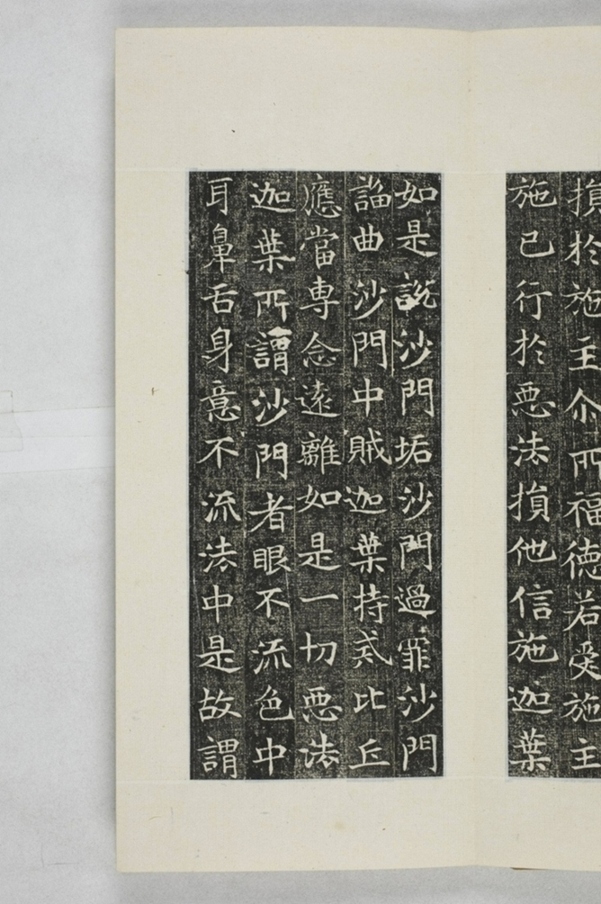 損於施主尒所福德若受施主
施已行於惡法損他信施迦葉
如是說沙門垢沙門過罪沙門
謟曲沙門中賊迦葉持戒比丘
應當專念遠離如是一切惡法
迦葉所謂沙門者眼不流色中
耳鼻舌身意不流法中是故謂